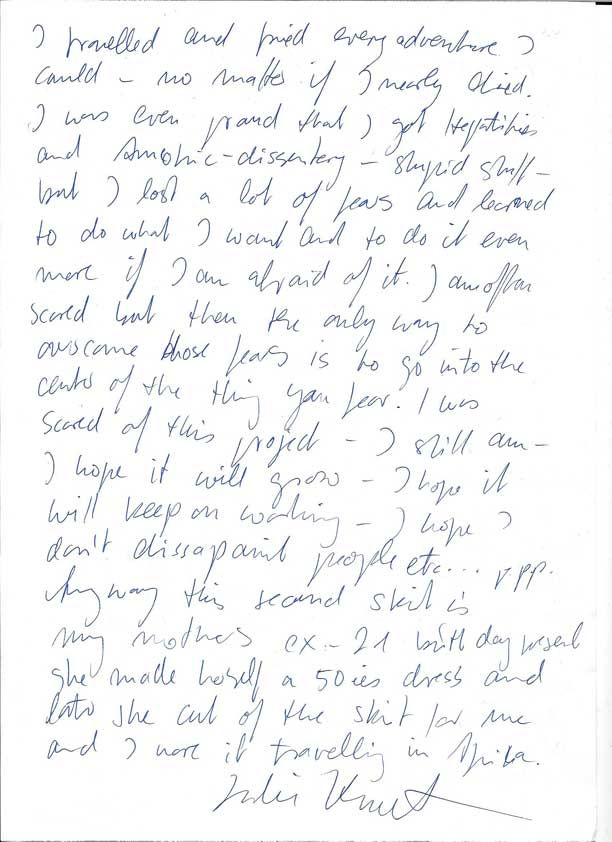 I travelled and tried every adventure I
could – no matter if I nearly died.
I was even praud that I got Hepatities
and Amobic-dissentery – stupid stuff –
but I lost a lot of fears and learned
to do what I want and to do it even
more if I am afraid of it. I am often
scared but then the only way to
overcome those fears is to go into the
center of the thing you fear. I was
scared of this project – I still am –
I hope it will grow – I hope it
will keep on working – I hope I
don't dissapaint people etc...
Anyway this second skirt is
my mothers ex-21 birthday present
she made herself a 50ies dress and
later she cut of the skirt for me
and I wore it travelling in Afrika.